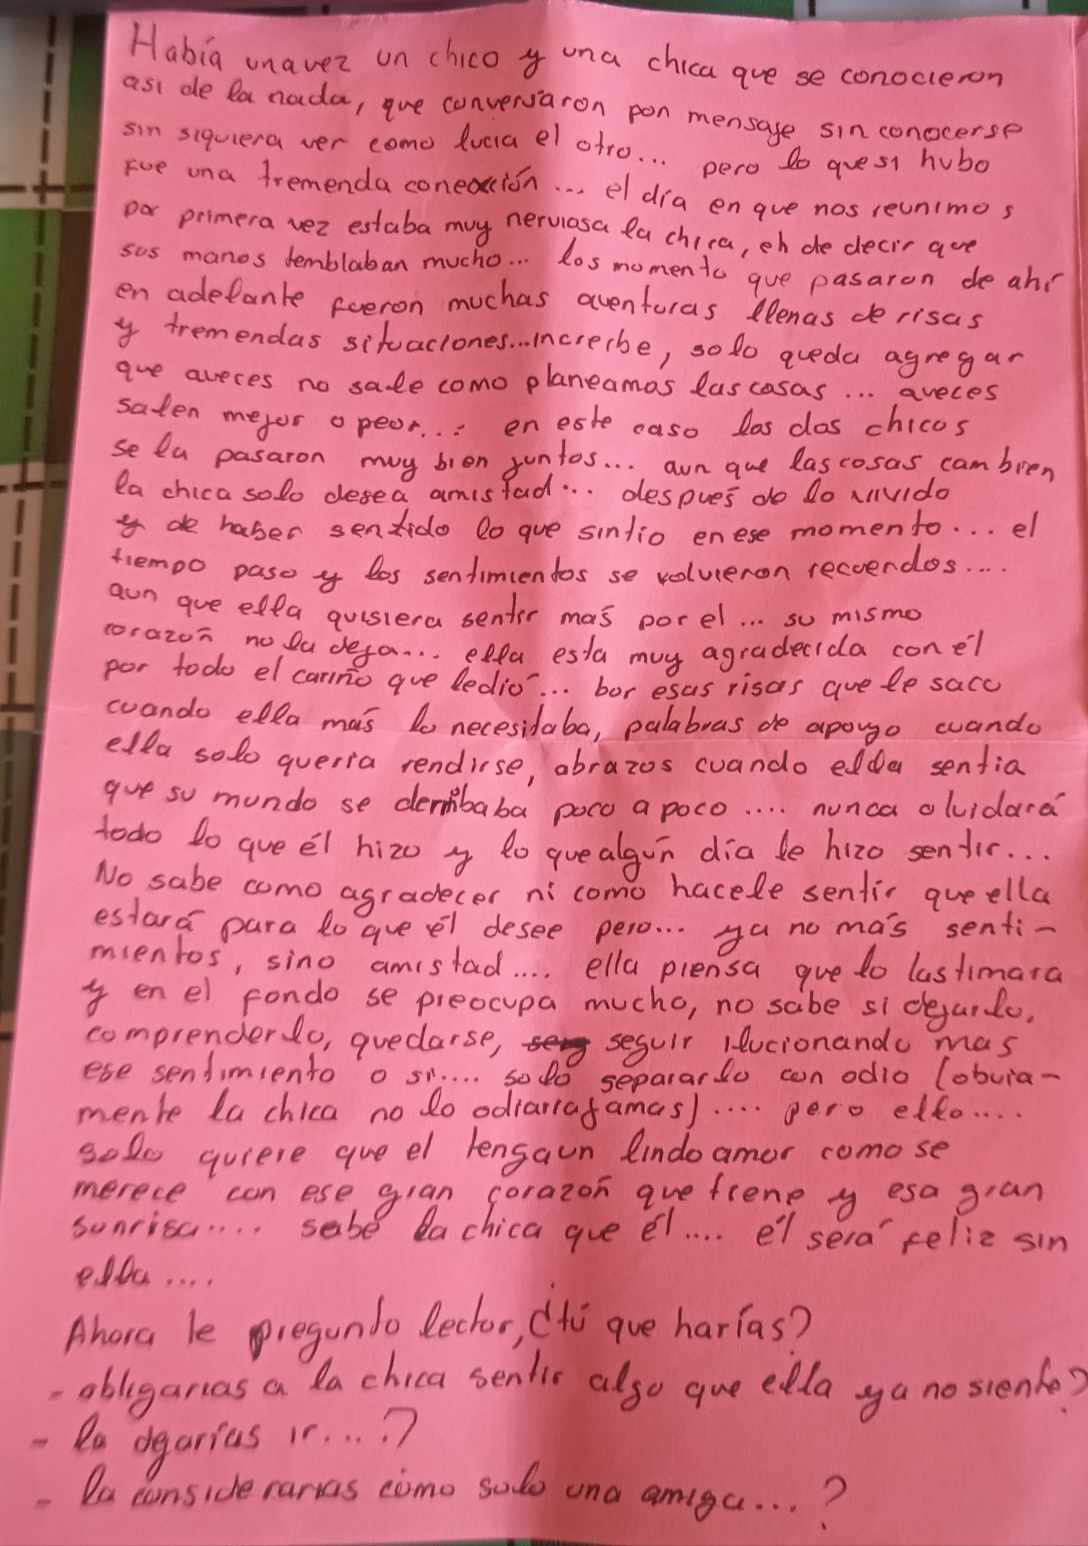 Había unavez un chico y una chica que se conocieron
asi de la nada, que conversaron pon mensaje sin conocerse
sin siquiera ver como lucia el otro... pero lo quesi hubo
fue una tremenda conexción... el día en que nos reunimos
por primera vez estaba muy nerviosa la chica, eh de decir que
sus manos temblaban mucho... los momento que pasaron de ahi
en adelante fueron muchas aventuras llenas de risas
y tremendas situaciones...increibe, solo queda agregar
que aveces no sale como planeamos las cosas... aveces
salen mejor o peor... en este caso los dos chicos
se la pasaron muy bien juntos... aun que las cosas cambien
la chica solo desea amistad... después de lo vivido
y de haber sentido lo que sintio en ese momento... el
tiempo paso y los sentimientos se volvieron recuerdos....
aun que ella quisiera sentir más por el... su mismo
corazón no la deja... ella esta muy agradecida con él
por todo el cariño que ledio... por esas risas que le saco
cuando ella más lo necesitaba, palabras de apoyo cuando
ella solo queria rendirse, abrazos cuando ella sentia
que su mundo se derribaba poco a poco.... nunca olvidará
todo lo que él hizo y lo que algún día le hizo sentir...
No sabe como agradecer ni como hacele sentir que ella
estará para lo que él desee pero... ya no más senti-
mientos, sino amistad.... ella piensa que lo lastimara
y en el fondo se preocupa mucho, no sabe si dejarlo,
comprenderlo, quedarse, seguir ilucionando mas
ese sentimiento o si.... solo separarlo con odio (obvia-
mente la chica no lo odiaria jamas).... pero ello....
solo quiere que el tenga un lindo amor como se
merece con ese gran corazón que tiene y esa gran
sonrisa.... sabe la chica que él.... él será feliz sin
ella....
Ahora le pregunto lector, ¿tú que harías?
- obligarias a la chica sentir algo que ella ya no siente?
- la dejarías ir....?
- la considerarias como solo una amiga...?